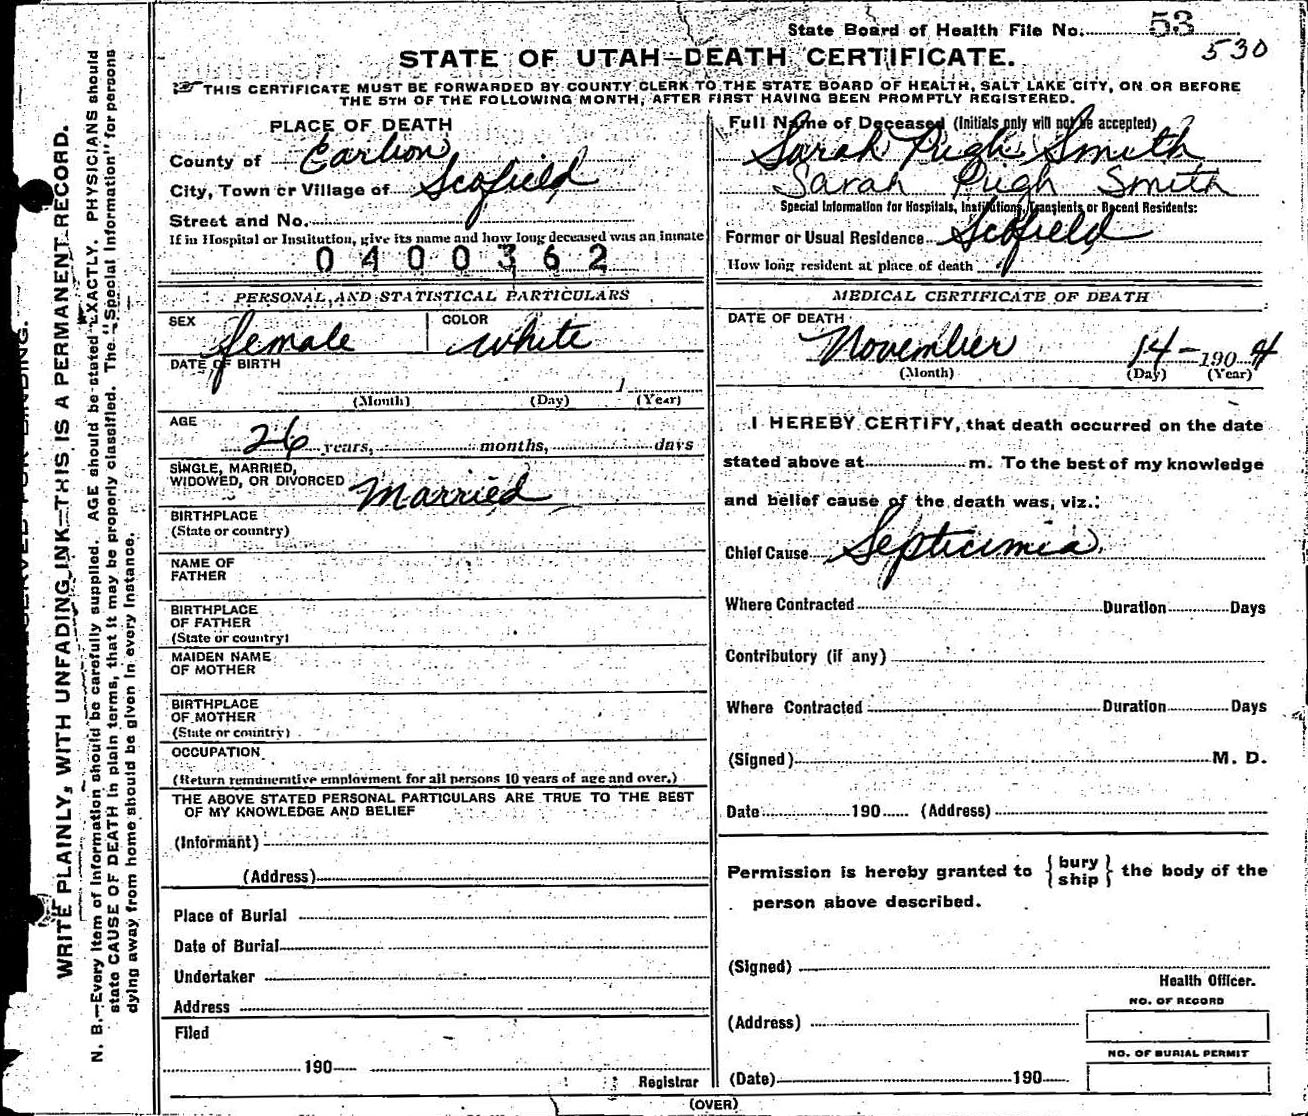 State Board of Health File No. 53
530
STATE OF UTAH—DEATH CERTIFICATE.
THIS CERTIFICATE MUST BE FORWARDED BY COUNTY CLERK TO THE STATE BOARD OF HEALTH, SALT LAKE CITY, ON OR BEFORE
THE 5TH OF THE FOLLOWING MONTH, AFTER FIRST HAVING BEEN PROMPTLY REGISTERED.
PLACE OF DEATH
County of Carbon
City, Town or Village of Scofield
Street and No.
If in Hospital or Institution, give its name and how long deceased was an inmate
0400362
PERSONAL AND STATISTICAL PARTICULARS
SEX female COLOR white
DATE OF BIRTH
1
(Month) (Day) (Year)
AGE
26 years, months, days
SINGLE, MARRIED,
WIDOWED, OR DIVORCED Married
BIRTHPLACE
(State or country)
NAME OF
FATHER
BIRTHPLACE
OF FATHER
(State or country)
MAIDEN NAME
OF MOTHER
BIRTHPLACE
OF MOTHER
(State or country)
OCCUPATION
(Return remunerative employment for all persons 10 years of age and over.)
THE ABOVE STATED PERSONAL PARTICULARS ARE TRUE TO THE BEST
OF MY KNOWLEDGE AND BELIEF
(Informant)
(Address)
Place of Burial
Date of Burial
Undertaker
Address
Filed
190
Registrar
Full Name of Deceased (Initials only will not be accepted)
Sarah Pugh Smith
Sarah Pugh Smith
Special Information for Hospitals, Institutions, Transients or Recent Residents:
Former or Usual Residence Scofield
How long resident at place of death
MEDICAL CERTIFICATE OF DEATH
DATE OF DEATH
November 14- 1904
(Month) (Day) (Year)
I HEREBY CERTIFY, that death occurred on the date
stated above at m. To the best of my knowledge
and belief cause of the death was, viz.:
Chief Cause Septicimia
Where Contracted Duration Days
Contributory (if any)
Where Contracted Duration Days
(Signed) M. D.
Date 190 (Address)
Permission is hereby granted to { bury ship } the body of the
person above described.
(Signed)
Health Officer.
NO. OF RECORD
(Address)
NO. OF BURIAL PERMIT
(Date) 190
(OVER)
WRITE PLAINLY, WITH UNFADING INK—THIS IS A PERMANENT RECORD.
N. B.—Every item of information should be carefully supplied. AGE should be stated EXACTLY. PHYSICIANS should
state CAUSE OF DEATH in plain terms, that it may be properly classified. The "Special Information" for persons
dying away from home should be given in every instance.